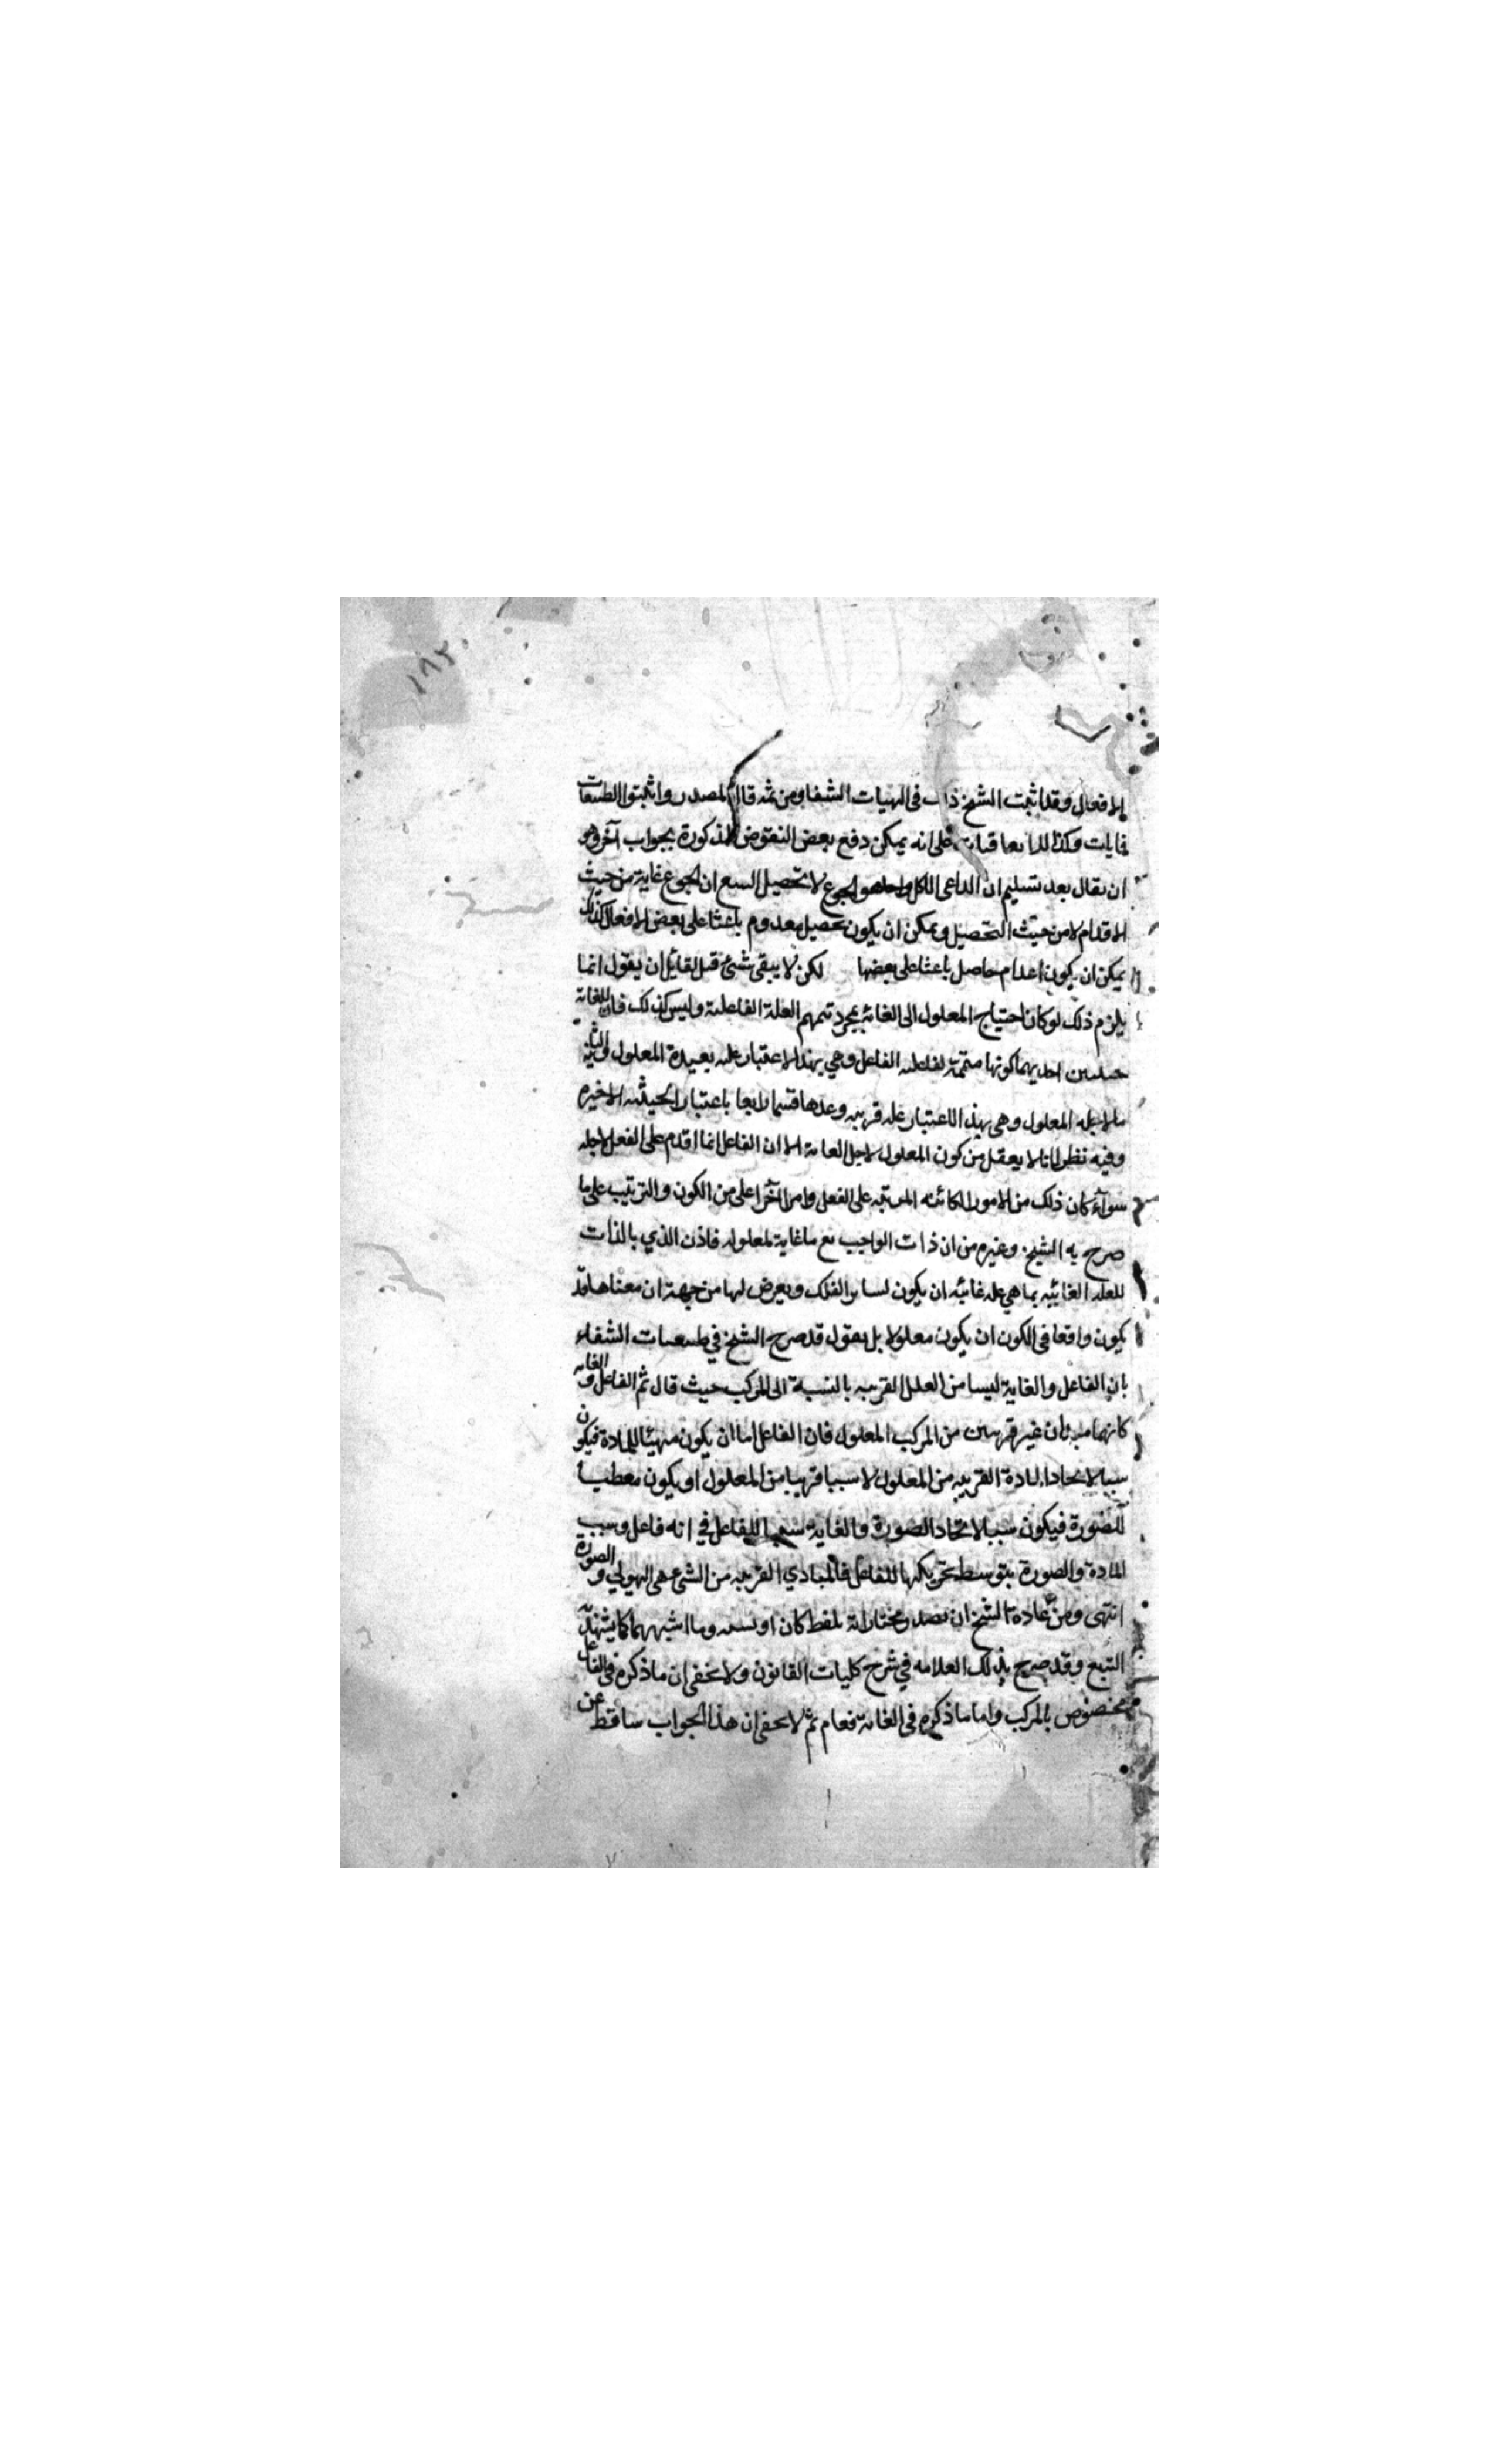 ١٨٢
الافعال وقد اثبت الشيخ ذلك في الهيات الشفا ومن ثمه قال المصدر واثبتوا للطبيعات
غايات وكذا للاتفاقيات على انه يمكن دفع بعض النقوض المذكورة بجواب آخر وهو
ان يقال بعد تسليم ان الداعي الى الاكل هو الجوع لا تحصيل الشبع ان الجوع غاية من حيث
الاقدام لا من حيث التحصيل ويمكن ان يكون تحصيل معدوم باعثا على بعض الافعال كذلك
يمكن ان يكون اعدام حاصل باعثا على بعضها لكن لا يبقى شيء قيل لقائل ان يقول انما
يلزم ذلك لو كان احتياج المعلول الى الغائية بمجرد تتميم العلة الفاعلية وليس كذلك فان للغاية
حيثيتين احديهما كونها متممة لفاعلية الفاعل وهي بهذا الاعتبار علة بعيدة المعلول والثانية
ما لاجله المعلول وهي بهذا الاعتبار علة قريبه وعدها قسما رابعا باعتبار الحيثية الاخيره
وفيه نظر لانا لا يعقل من كون المعلول لاجل الغاية الا ان الفاعل انما اقدم على الفعل لاجله
سوآء كان ذلك من الامور الكائنه المرتبه على الفعل وامرا آخر اعلى من الكون والترتيب على ما
صرح به الشيخ وغيره من ان ذات الواجب تع ما غاية لمعلوله فاذن الذي بالذات
للعله الغائيه بما هي عله غائيه ان يكون لسائر الفلك ويعرض لها من جهة ان معناها قد
يكون واقعا في الكون ان يكون معلولا بل نقول قد صرح الشيخ في طبيعيات الشفاء
بان الفاعل والغاية ليسا من العلل القريبه بالنسبة الى المركب حيث قال ثم الفاعل والغايه
كانهما مبدأن غير قريبين من المركب المعلول فان الفاعل اما ان يكون مهيئا للمادة فيكون
سببا لايجاد المادة القريبه من المعلول لا سببا قريبا من المعلول او يكون معطيا
للصورة فيكون سببا لايجاد الصورة والغاية سبب للفاعل في انه فاعل وسبب
المادة والصورة بتوسط تحريكها للفاعل فالمبادي القريبه من الشئ هي الهيولي والصورة
انتهى ومن عادة الشيخ ان يصدر مختاراته بلفظ كان او يشبه وما اشبههما كما يشهد به
التتبع وقد صرح بذلك العلامه في شرح كليات القانون ولا يخفى ان ما ذكره في الفاعل
مخصوص بالمركب واما ما ذكره في الغاية فعام ثم لا يخفى ان هذا الجواب ساقط عن